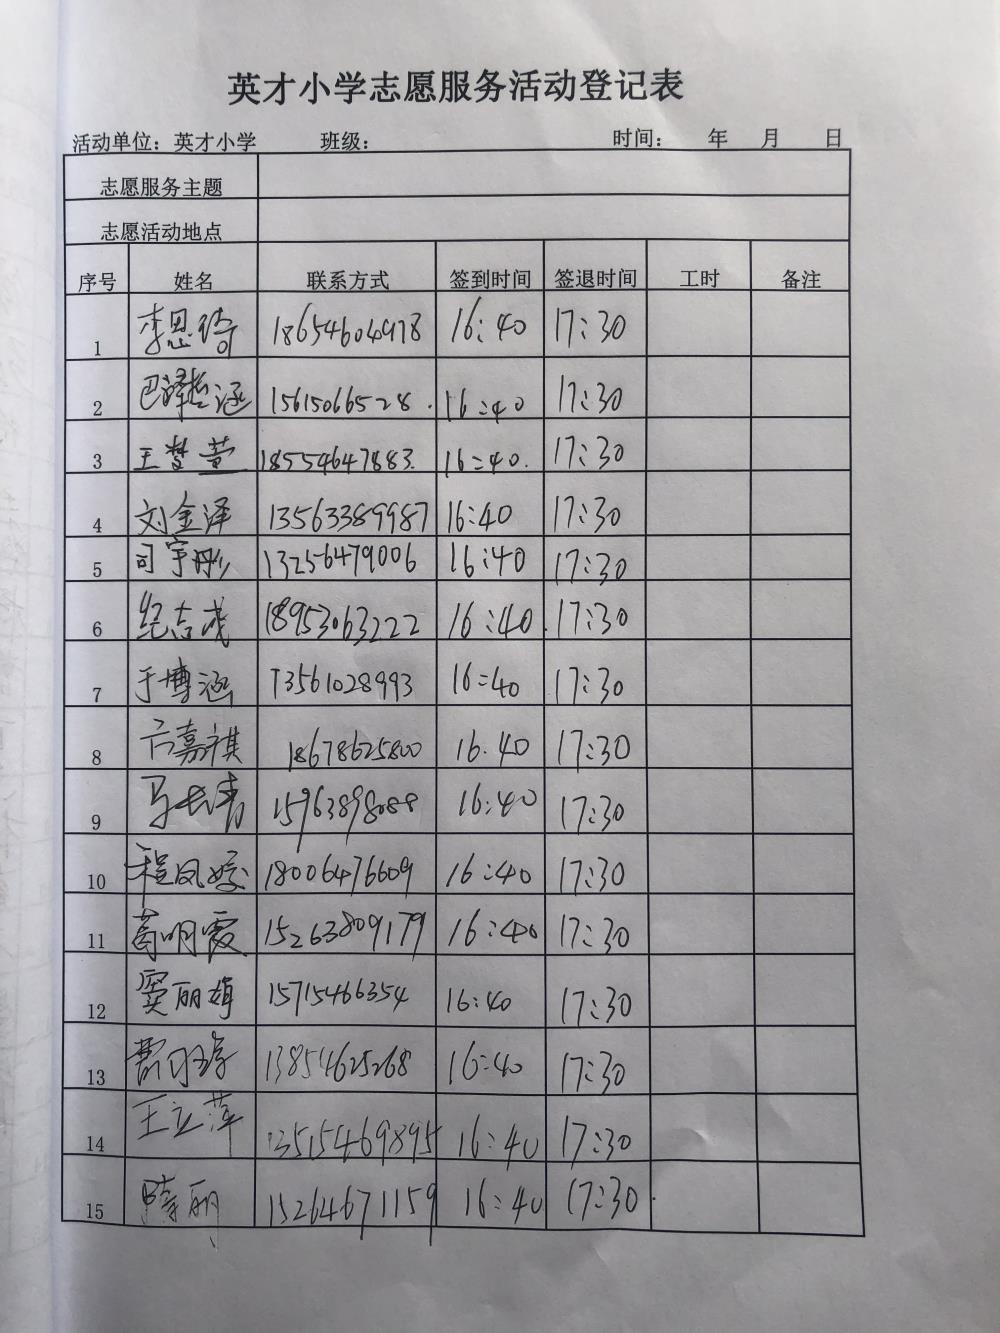 英才小学志愿服务活动登记表
活动单位：英才小学 班级： 时间： 年 月 日
志愿服务主题
志愿活动地点
序号 姓名 联系方式 签到时间 签退时间 工时 备注
1 李恩绮 18654604978 16:40 17:30
2 巴泽涵 15615066528. 16:40 17:30
3 王梦萱 18554647883. 16:40. 17:30
4 刘金泽 13563389987 16:40 17:30
5 司宇彤 13256479006 16:40 17:30
6 纪志成 18953063222 16:40. 17:30
7 于博涵 13561028993 16:40 17:30
8 嘉祺 18678625800 16.40 17:30
9 马长青 15963898088 16:40 17:30
10 程凤姣 18006476609 16:40 17:30
11 葛明霞 15263809179 16:40 17:30
12 窦丽娟 15715466354 16:40 17:30
13 13854625268 16:40 17:30
14 王立萍 13515469895 16:40 17:30
15 丽 15264671159 16:40 17:30.